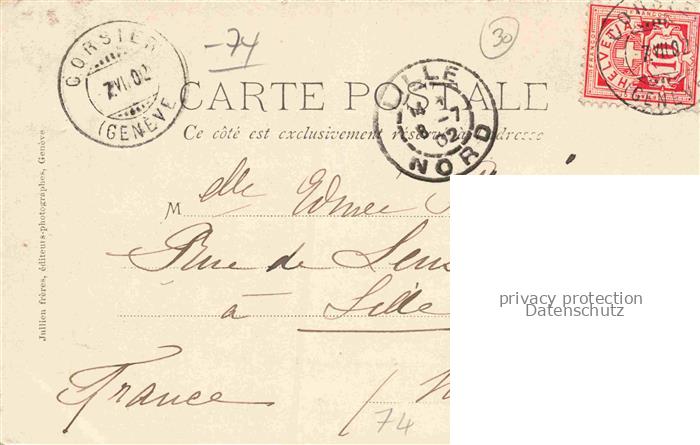 -74
30
CORSIER
7.VII.02
(GENÈVE
HELVETIA
10
LILLE
8 -7
02
NORD
CARTE POSTALE
Ce côté est exclusivement réservé à l'adresse
Melle Edmée
Rue de Lens
à Lille
France
74
Jullien frères, éditeurs-photographes, Genève.
privacy protection
Datenschutz